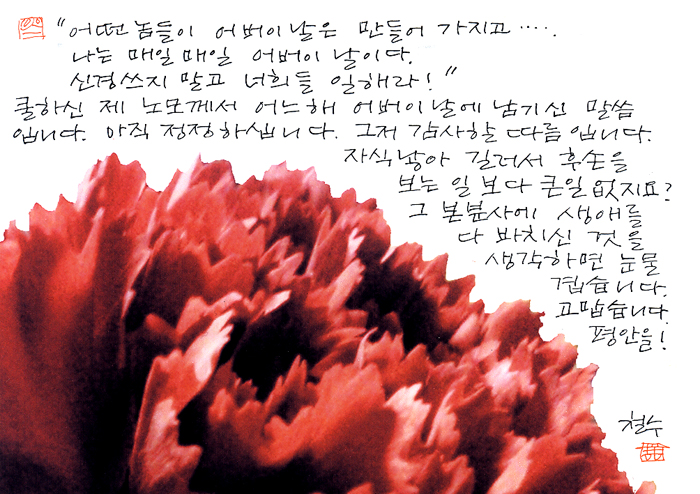 "어떤 놈들이 어버이날은 만들어 가지고‥‥.
나는 매일매일 어버이 날이다.
신경쓰지 말고 너희들 일해라!"
쿨하신 제 노모께서 어느해 어버이날에 남기신 말씀
입니다. 아직 정정하십니다. 그저 감사할 따름 입니다.
자식낳아 길러서 후손을
보는 일 보다 큰일 없지요?
그 본분사에 생애를
다 바치신 것을
생각하면 눈물
겹습니다.
고맙습니다.
평안을!
철수